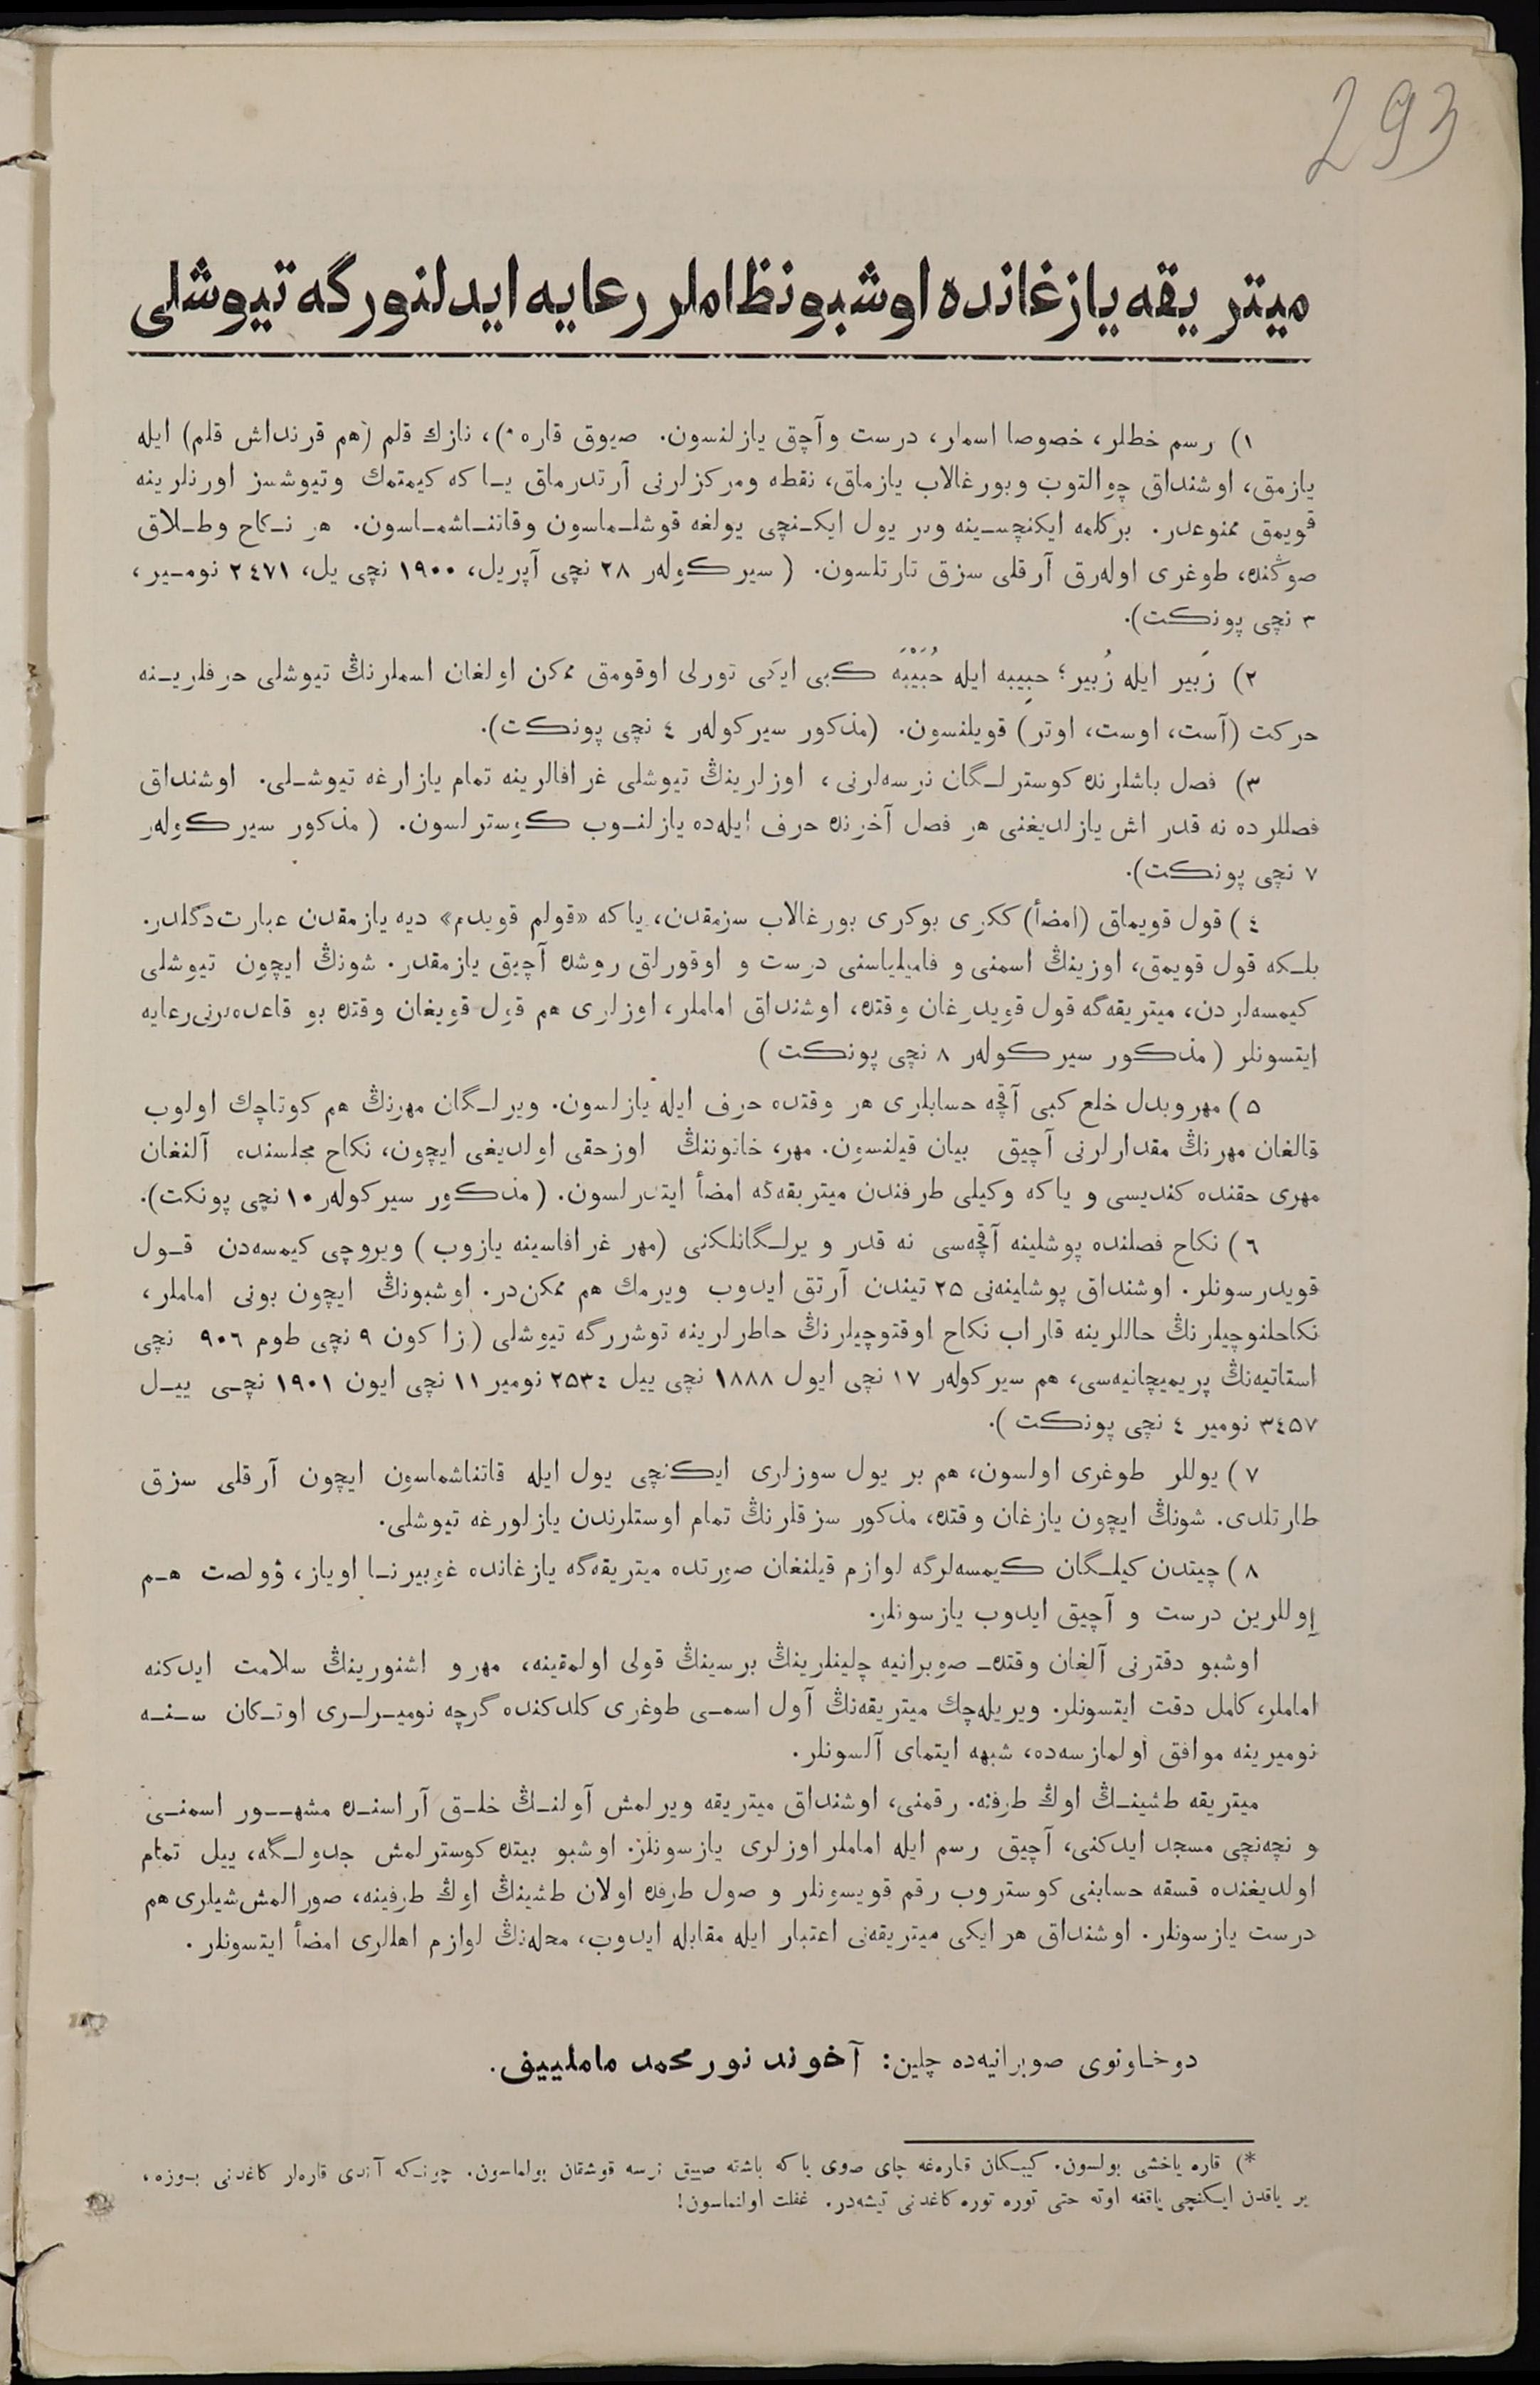 293
ميتريقه يازغانده اوشبو نظاملر رعايه ايدلنورگه تيوشلى
١) رسم خطلر، خصوصا اسملر، درست وآچق يازلنسون. صيوق قاره *)، نازك قلم (هم قرنداش قلم) ايله
يازمق، اوشنداق چوالتوب وبورغالاب يازماق، نقطه ومركزلرنى آرتدرماق يـا كه كيمتمك وتيوشسز اورنلرينه
قويمق ممنوعدر. بركلمه ايكنچسـينه وبر يول ايكـنچى يولغه قوشلـماسون وقاتنـاشمـاسون. هر نـكاح وطـلاق
صوڭنده، طوغرى اولەرق آرقلى سزق تارتلسون. (سيركولەر ٢٨ نچى آپريل، ١٩٠٠ نچى يل، ٢٤٧١ نومـير،
٣ نچى پونكت).
٢) زَبير ايله زُبير؛ حبِيبه ايله حُبَيْبَه كبى ايكى تورلى اوقومق ممكن اولغان اسملرنڭ تيوشلى حرفلريـنه
حركت (آست، اوست، اوتر) قويلنسون. (مذكور سيركولەر ٤ نچى پونكت).
٣) فصل باشلرنده كوسترلـگان نرسەلرنى، اوزلرينڭ تيوشلى غرافالرينه تمام يازارغه تيوشـلى. اوشنداق
فصللرده نه قدر اش يازلديغنى هر فصل آخرنده حرف ايلەده يازلنـوب كوسترلسون. (مذكور سيركولەر
٧ نچى پونكت).
٤) قول قويماق (امضأ) ككرى بوكرى بورغالاب سزمقدن، ياكه «قولم قويدم» ديه يازمقدن عبارت دگلدر.
بلـكه قول قويمق، اوزينڭ اسمنى و فاميلياسنى درست و اوقورلق روشده آچيق يازمقدر. شونڭ ايچون تيوشلى
كيمسەلردن، ميتريقەگه قول قويدرغان وقتده، اوشنداق اماملر، اوزلرى هم قول قويغان وقتده بو قاعدەلرنى رعايه
ايتسونلر (مذكور سيركولەر ٨ نچى پونكت)
٥) مهر وبدل خلع كبى آقچه حسابلرى هر وقتده حرف ايله يازلسون. ويرلـگان مهرنڭ هم كوتاچك اولوب
قالغان مهرنڭ مقدارلرنى آچيق بيان قيلنسون. مهر، خاتوننڭ اوزحقى اولديغى ايچون، نكاح مجلسنده آلنغان
مهرى حقنده كنديسى و ياكه وكيلى طرفندن ميتريقەگه امضأ ايتدرلسون. (مذكور سيركولەر ١٠ نچى پونكت).
٦) نكاح فصلنده پوشلينه آقچەسى نه قدر ويرلـگانلكنى (مهر غرافاسينه يازوب) ويروچى كيمسەدن قـول
قويدرسونلر. اوشنداق پوشلينەنى ٢٥ تيندن آرتق ايدوب ويرمك هم ممكن در. اوشبونڭ ايچون بونى اماملر،
نكاحلنوچيلرنڭ حاللرينه قاراب نكاح اوقتوچيلرنڭ خاطرلرينه توشررگه تيوشلى (زاكون ٩ نچى طوم ٩٠٦ نچى
استاتيەنڭ پريميچانيەسى، هم سيركولەر ١٧ نچى ايول ١٨٨٨ نچى ييل ٢٥٣٤ نومير ١١ نچى ايون ١٩٠١ نچـى ييـل
٣٤٥٧ نومير ٤ نچى پونكت).
٧) يوللر طوغرى اولسون، هم بر يول سوزلرى ايكنچى يول ايله قاتناشماسون ايچون آرقلى سزق
طارتلدى. شونڭ ايچون يازغان وقتده، مذكور سزقلرنڭ تمام اوستلرندن يازلورغه تيوشلى.
٨) چيتدن كيلـگان كيمسەلرگه لوازم قيلنغان صورتده ميتريقەگه يازغانده غوبيرنـا اوياز، ۋولصت هـم
اوللرين درست و آچيق ايدوب يازسونلر.
اوشبو دفترنى آلغان وقتده صوبرانيه چلينلرينڭ برسينڭ قولى اولمقينه، مهر و اشنورينڭ سلامت ايدكنه
اماملر، كامل دقت ايتسونلر. ويريلەچك ميتريقەنڭ آول اسمـى طوغرى كلدكنده گرچه نوميـرلـرى اوتـكان سـنـه
نوميرينه موافق اولمازسەده، شبهه ايتماى آلسونلر.
ميتريقه طشينـڭ اوڭ طرفنه رقمنى، اوشنداق ميتريقه ويرلمش آولنـڭ خلـق آراسنـده مشهـور اسمنـى
و نچەنچى مسجد ايدكنى، آچيق رسم ايله اماملر اوزلرى يازسونلر. اوشبو بيتده كوسترلمش جدولـگه، ييل تمام
اولديغنده قسقه حسابنى كوستروب رقم قويسونلر و صول طرفده اولان طشينڭ اوڭ طرفينه، صورالمش شيلرى هم
درست يازسونلر. اوشنداق هر ايكى ميتريقەنى اعتبار ايله مقابله ايدوب، محلەنڭ لوازم اهاللرى امضأ ايتسونلر.
دوخاونوى صوبرانيەده چلين: آخوند نورمحمد ماملييف.
*) قاره ياخشى بولسون. كيبـكان قارەغه چاى صوى ياكه باشقه صييق نرسه قوشقان بولماسون. چونـكه آندى قارەلر كاغدنى بـوزه،
بر ياقدن ايـكنچى ياقغه اوته حتى توره توره كاغدنى تيشەدر. غفلت اولنماسون!